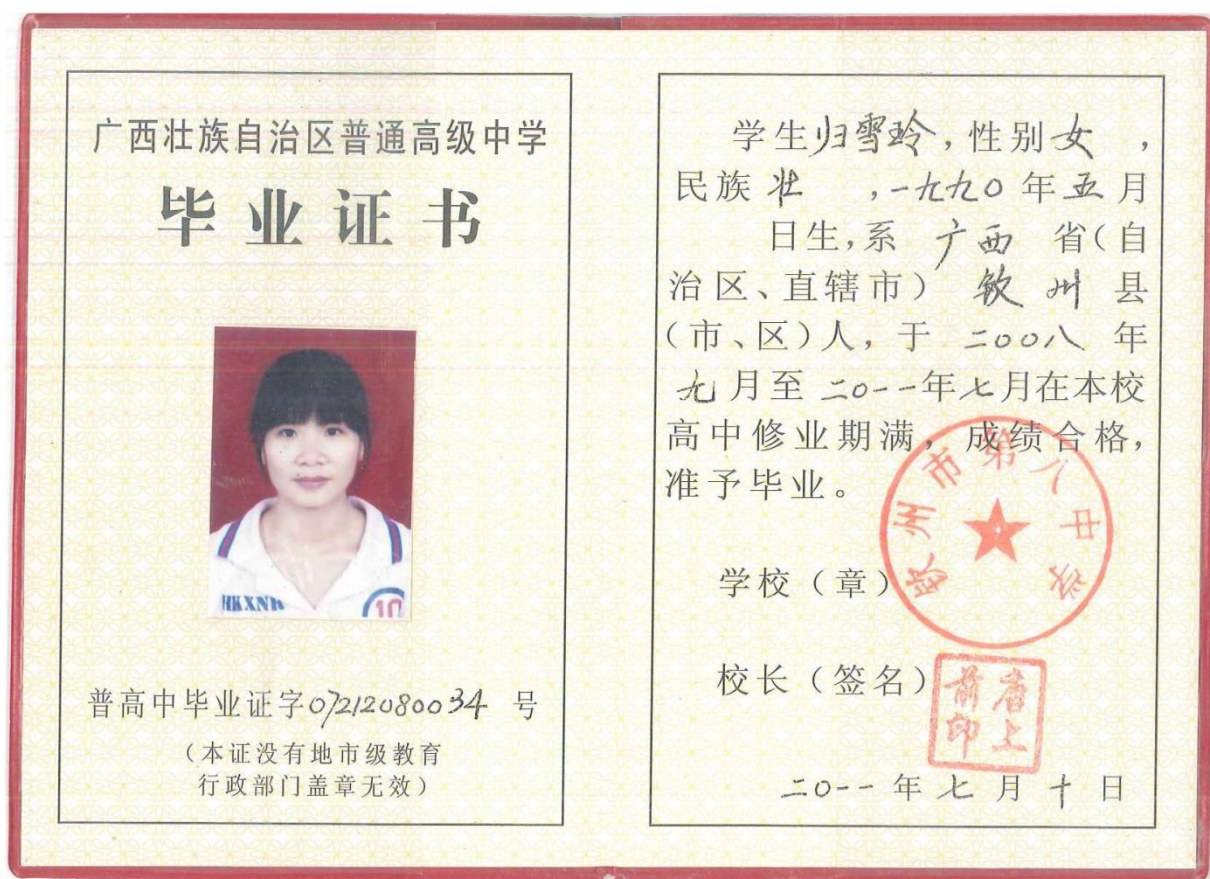 广西壮族自治区普通高级中学
毕业证书
HKXNH
10
普高中毕业证字07212080034 号
（本证没有地市级教育
行政部门盖章无效）
学生归雪玲，性别女，
民族壮，一九九〇年五月
日生，系 广西 省（自
治区、直辖市） 钦州 县
（市、区）人，于 二〇〇八 年
九月至二〇一一年七月在本校
高中修业期满，成绩合格，
准予毕业。
钦州市第八中学
学校（章）
校长（签名）
唐上
前印
二〇一一年七月十日